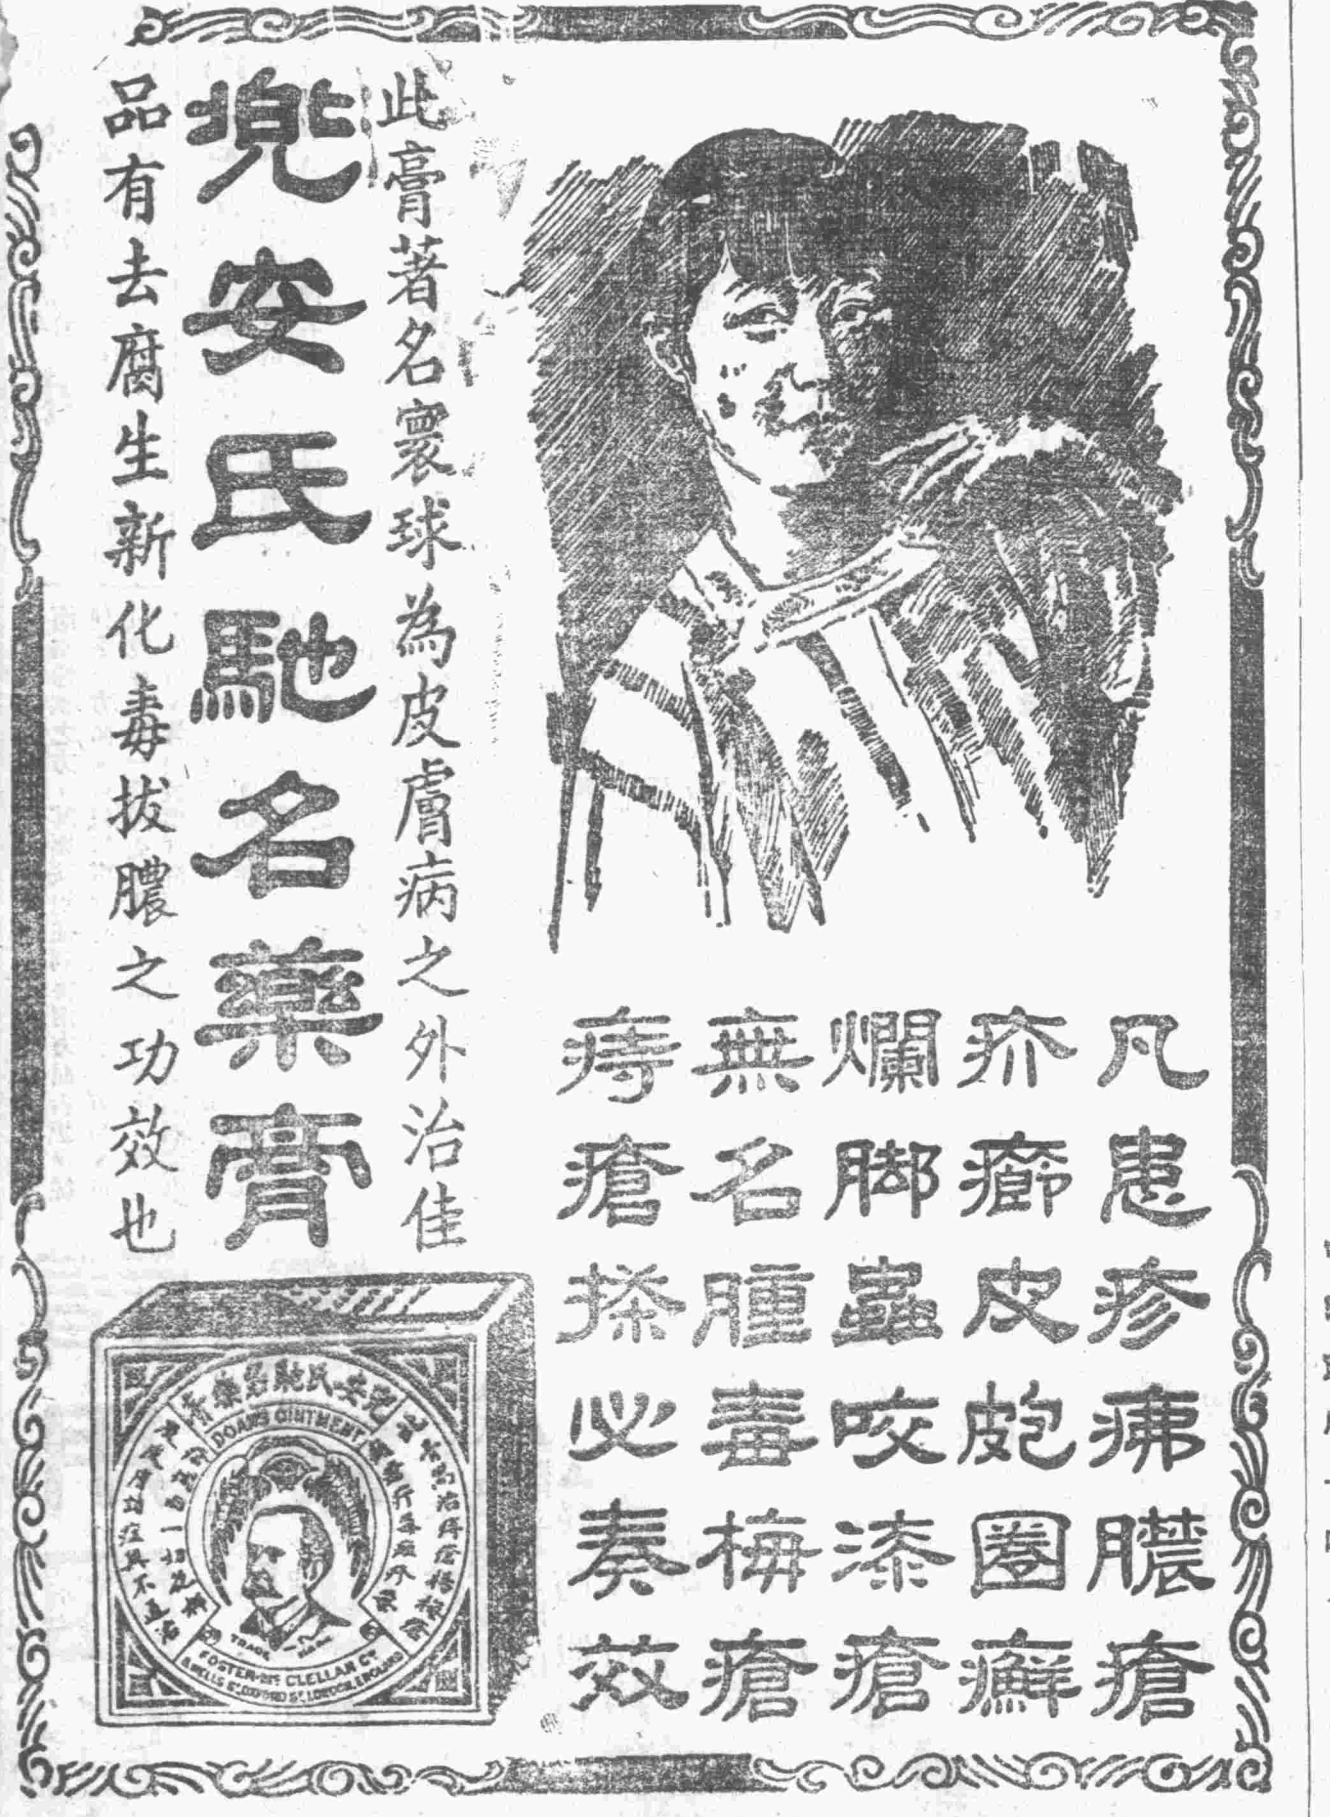 凡患疹疿膿瘡
疥癤皮皰圈癬
爛脚蟲咬漆瘡
無名腫毒梅瘡
痔瘡搽必奏效
此膏著名寰球為皮膚病之外治佳
兜安氏馳名藥膏
品有去腐生新化毒拔膿之功效也
兜安氏馳名藥膏
DOAN'S OINTMENT
TRADE MARK
FOSTER-McCLELLAN Co
8, WELLS St. OXFORD St. LONDON, ENGLAND